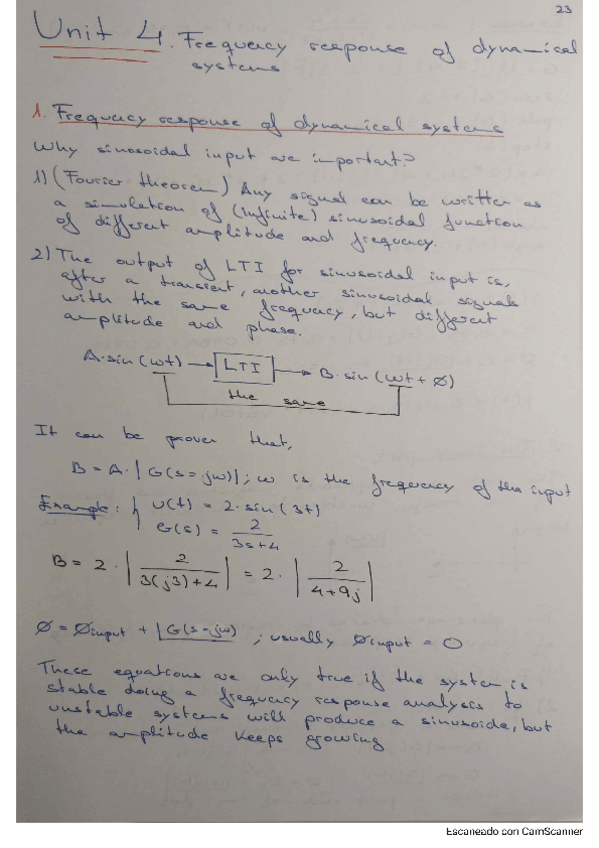 23
Unit 4. Frequency response of dynamical
systems
1. Frequency response of dynamical systems
Why sinosoidal input are important?
1) (Fourier theorem) Any signal can be written as
a simulation of (infinite) sinusoidal function
of different amplitude and frequency.
2) The output of LTI for sinusoidal input is,
after a transient, another sinusoidal signals
with the same frequency, but different
amplitude and phase.
A·sin(wt) → LTI → B·sin(wt + ø)
the same
It can be prover that,
B = A·|G(s=jw)|; w is the frequency of the input
Example: { u(t) = 2·sin(3t)
G(s) = 2/(3s+4)
B = 2·|2/(3(j3)+4)| = 2·|2/(4+9j)|
ø = øinput + ∠G(s=jw) ; usually øinput = 0
These equations are only true if the system is
stable doing a frequency response analysis to
unstable systems will produce a sinusoide, but
the amplitude keeps growing
Escaneado con CamScanner